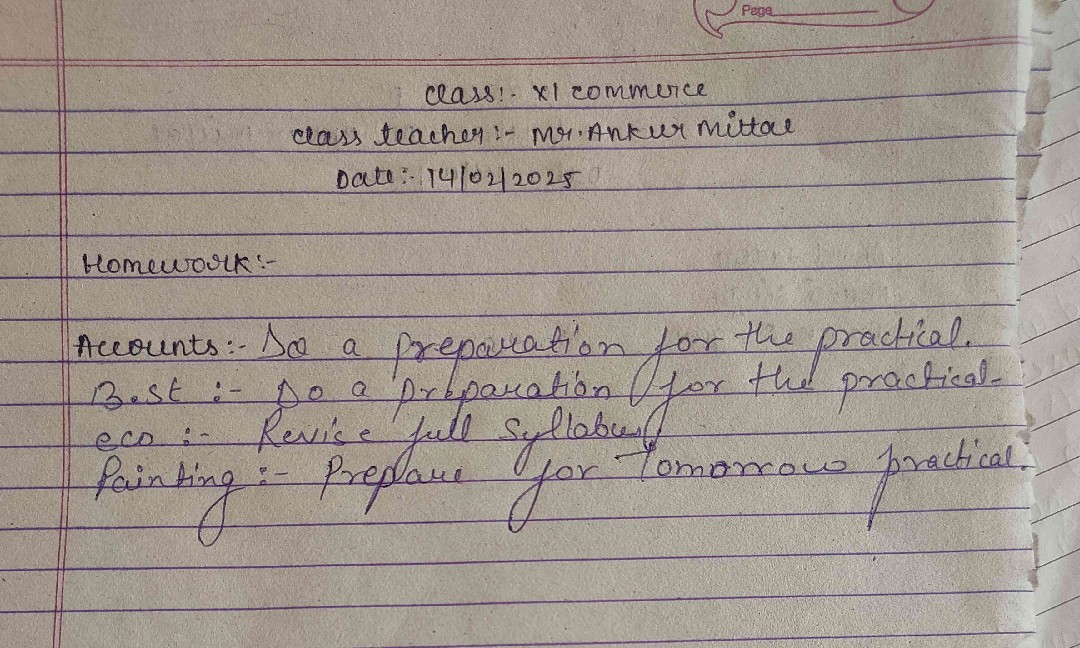 Page
Class:- XI commerce
Class teacher:- Mr. Ankur Mittal
Date:- 14/02/2025
Homework:-
Accounts:- Do a preparation for the practical.
B.st :- Do a preparation for the practical-
eco :- Revise full Syllabus
Painting :- Prepare for Tomorrow practical.